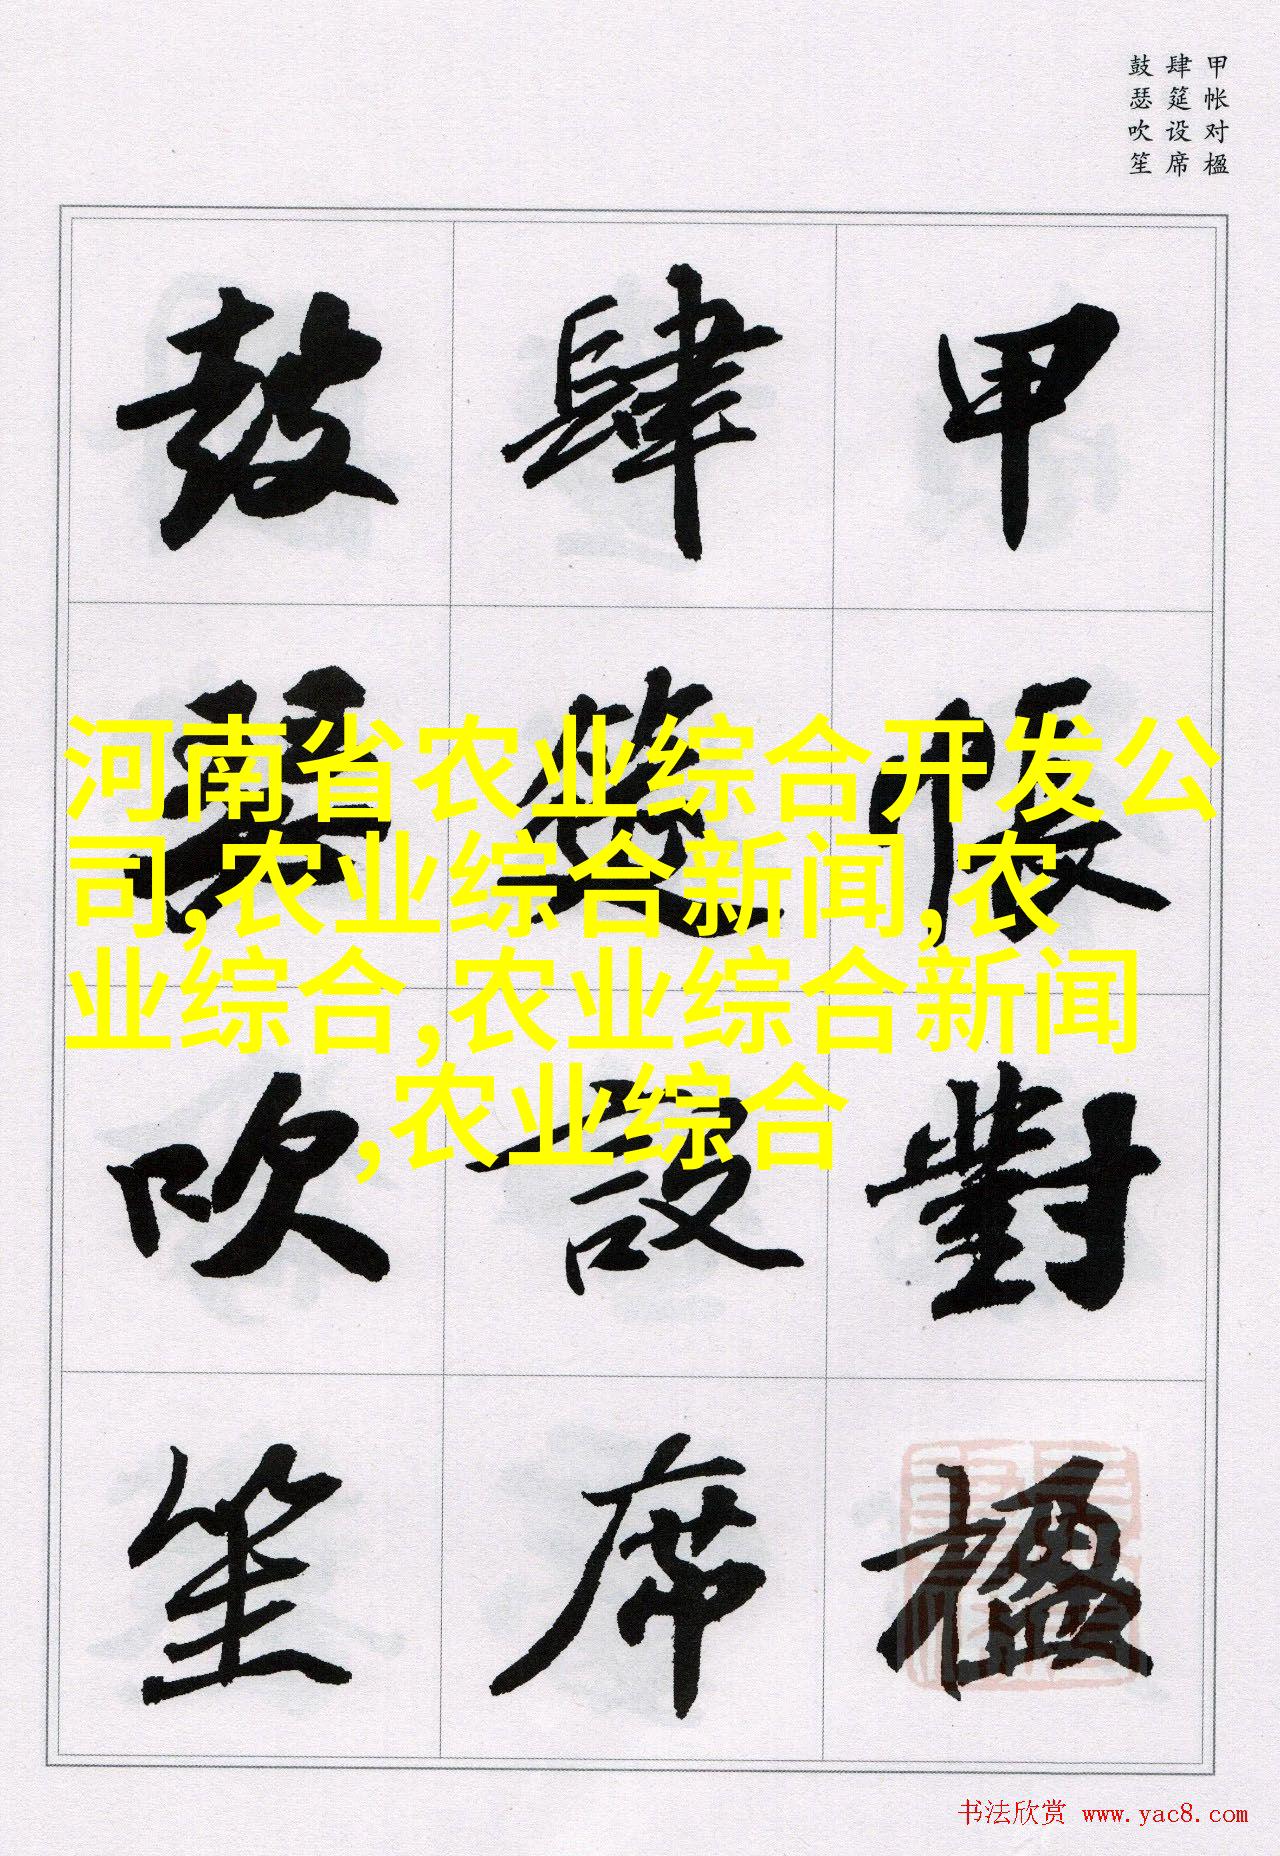 甲帐对楹
肆筵设席
鼓瑟吹笙
甲帳對楹
肆筵設席
鼓瑟吹笙
河南省农业综合开发公
司,农业综合新闻,农
业综合,农业综合新闻
,农业综合
书法欣赏 www.yac8.com